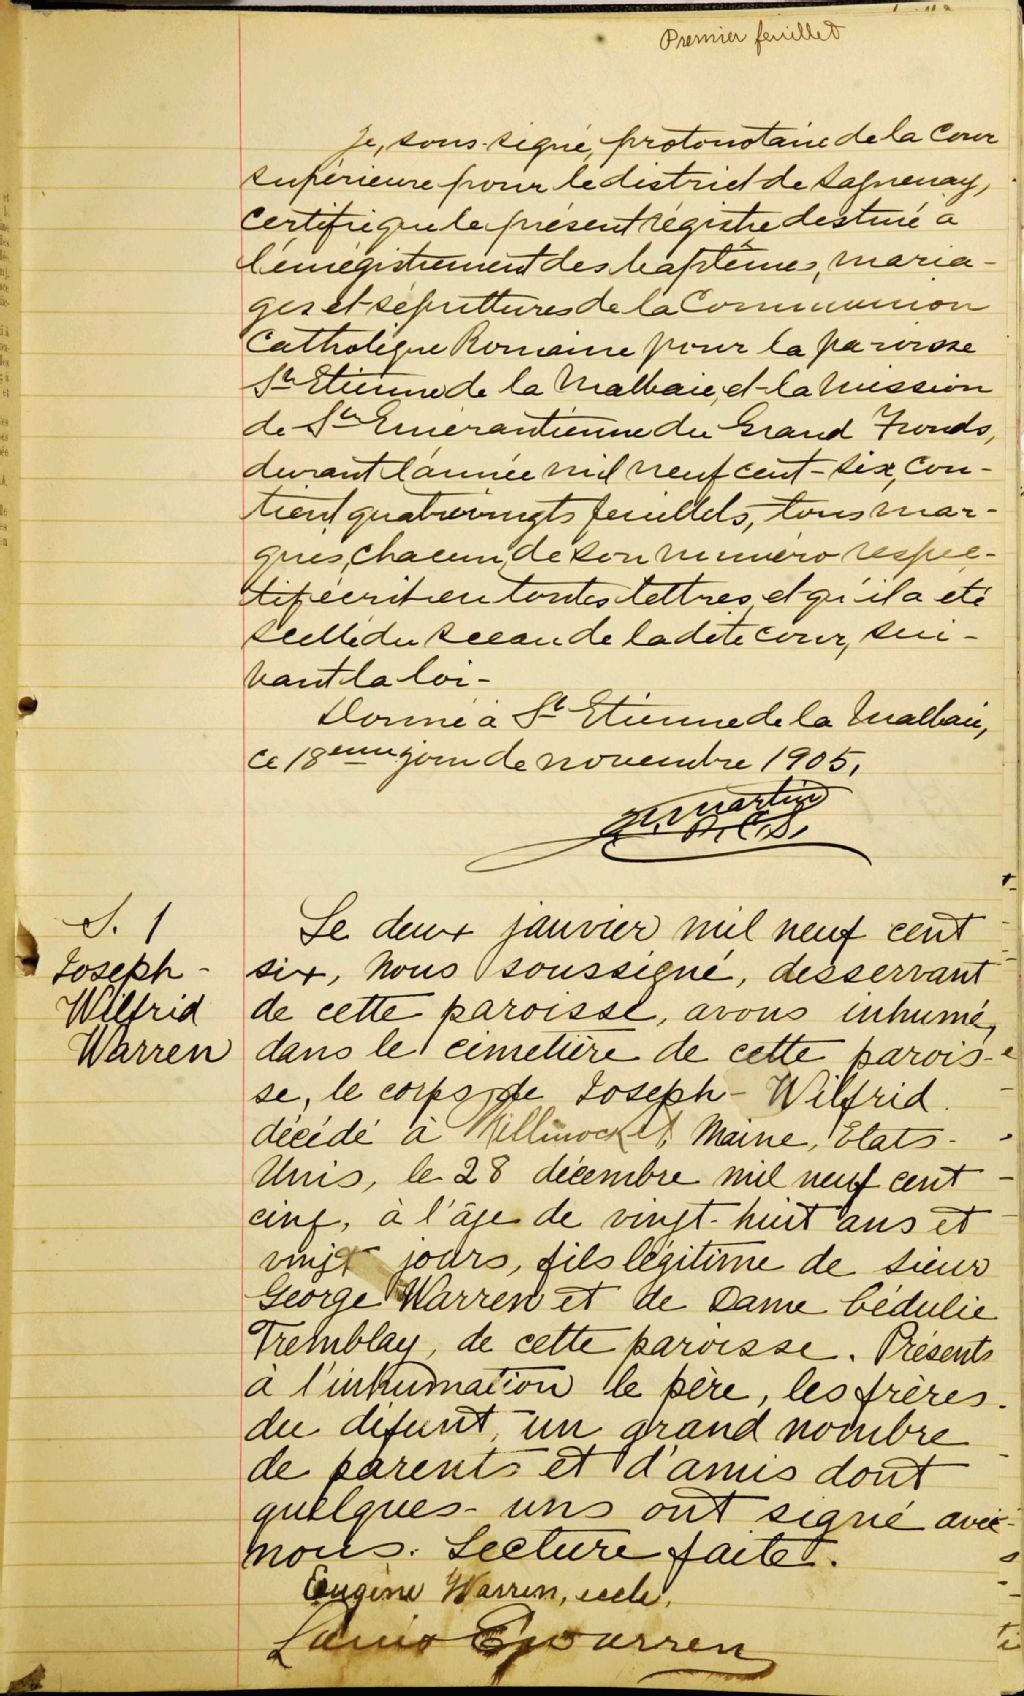 Premier feuillet
Je, sous-signé, protonotaire de la Cour
supérieure pour le district de Saguenay,
certifie que le présent régistre destiné à
l'enrégistrement des baptêmes, maria-
ges et sépultures de la Communion
Catholique Romaine pour la paroisse
St Etienne de la Malbaie, et la Mission
de Ste Emérantienne du Grand Fonds,
durant l'année mil neuf cent-six, con-
tient quatrevingts feuillets, tous mar-
qués, chacun, de son numéro respec-
tif écrit en toutes lettres, et qu'il a été
scellé du sceau de ladite cour, sui-
vant la loi-
Donné à St Etienne de la Malbaie,
ce 18eme jour de novembre 1905.
Martin
P.C.S.
S. 1
Joseph-
Wilfrid
Warren
Le deux janvier mil neuf cent
six, nous soussigné, desservant
de cette paroisse, avons inhumé,
dans le cimetière de cette parois-
se, le corps de Joseph-Wilfrid
décédé à Millinocket, Maine, Etats-
Unis, le 28 décembre mil neuf cent
cinq, à l'âge de vingt-huit ans et
vingt jours, fils légitime de sieur
George Warren et de Dame Cédulie
Tremblay, de cette paroisse. Présents
à l'inhumation le père, les frères
du défunt, un grand nombre
de parents et d'amis dont
quelques-uns ont signé avec
nous. Lecture faite.
Eugène Warren, eccle.
Louis E Warren